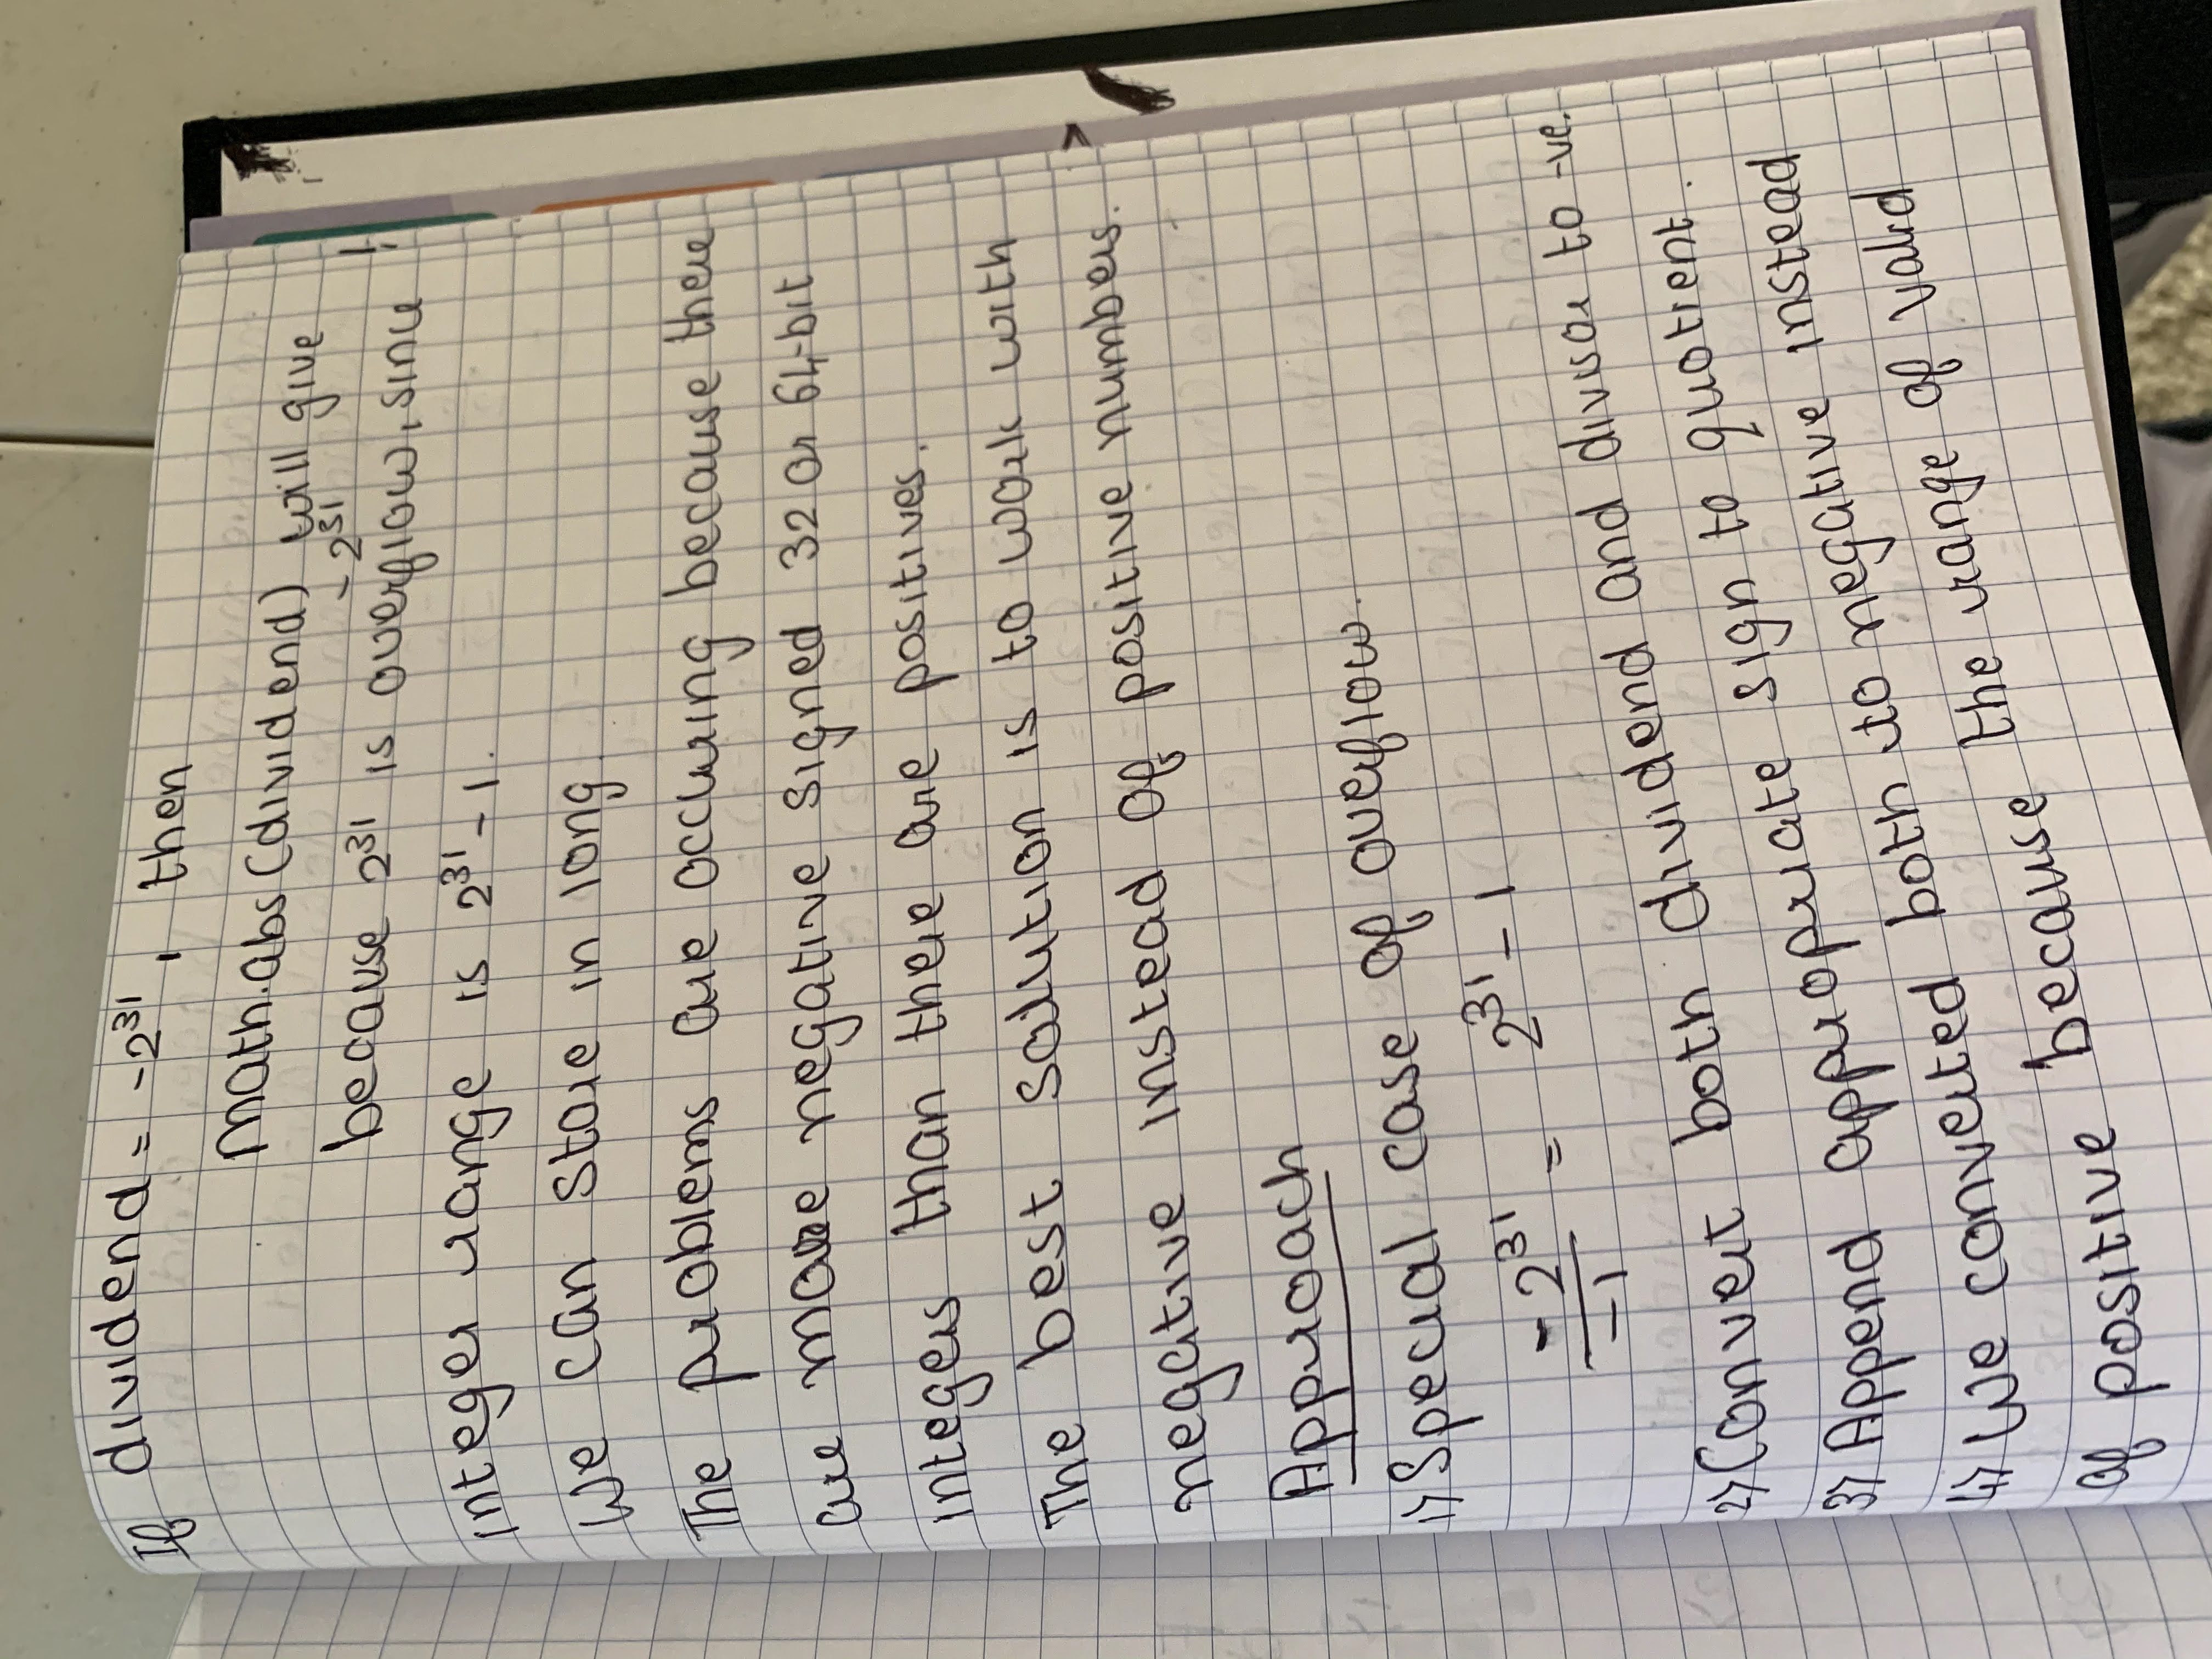 If dividend = -2³¹, then
Math.abs(dividend) will give
-2³¹
because 2³¹ is overflow, since
integer range is 2³¹-1.
We can store in long
The problems are occuring because there
are more negative signed 32 or 64-bit
integers than there are positives.
The best solution is to work with
negative instead of positive numbers.
Approach
1) Special case of overflow.
-2³¹/-1 = 2³¹-1
2) Convert both dividend and divisor to -ve.
3) Append appropriate sign to quotient.
4) We converted both to negative instead
of positive because the range of valid